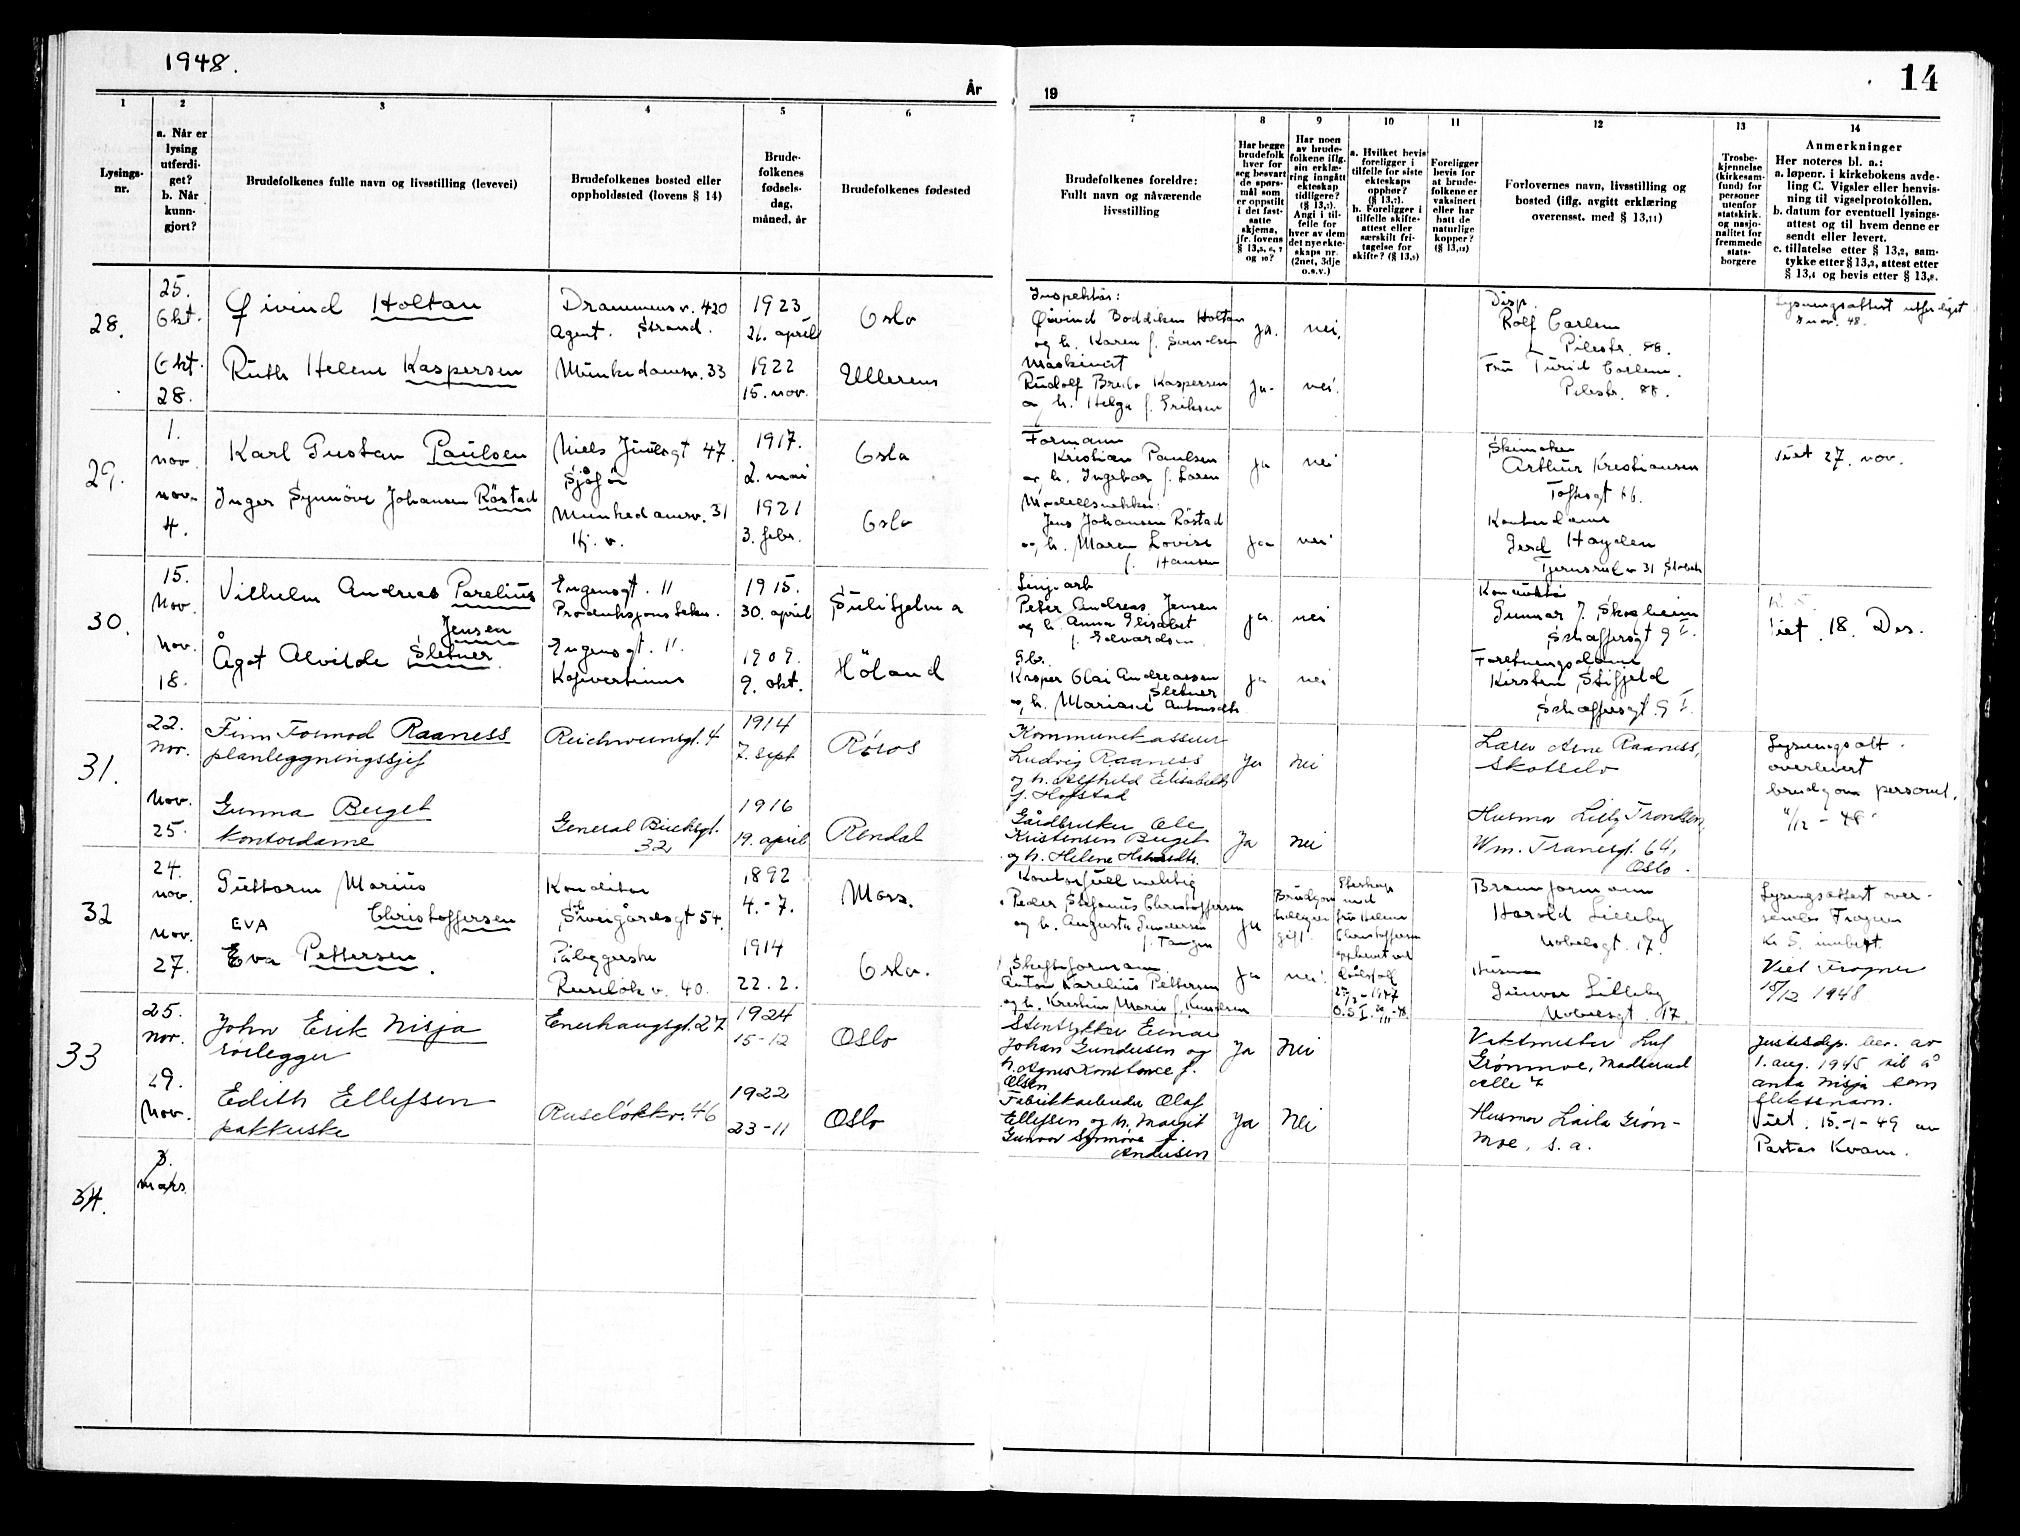 1948.
År
19
14
1
2
3
4
5
6
7
8
9
10
11
12
13
14
Lysings-
nr.
a. Når er
lysing
utferdi-
get?
b. Når
kunn-
gjort?
Brudefolkenes fulle navn og livsstilling (levevei)
Brudefolkenes bosted eller
oppholdssted (lovens § 14)
Brude-
folkenes
fødsels-
dag,
måned, år
Brudefolkenes fødested
Brudefolkenes foreldre:
Fullt navn og nåværende
livsstilling
Har begge
brudefolk
hver for
seg besvart
de spørs-
mål som
er oppstilt
i det fast-
satte
skjema,
jfr. lovens
§ 13,5, 6, 7
og 10?
Har noen
av brude-
folkene iflg.
sin erklæ-
ring inngått
ekteskap
tidligere?
(§ 13,7).
Angi i til-
felle for
hver av dem
det nye ekte-
skaps nr.
(2net, 3dje
o.s.v.)
a. Hvilket bevis
foreligger i
tilfelle for siste
ekteskaps
opphør?
(§ 13,7).
b. Foreligger i
tilfelle skifte-
attest eller
særskilt fri-
tagelse for
skifte? (§ 13,8)
Foreligger
bevis for
at brude-
folkene er
vaksinert
eller har
hatt de
naturlige
kopper?
(§ 13,12)
Forlovernes navn, livsstilling og
bosted (iflg. avgitt erklæring
overensst. med § 13,11)
Trosbe-
kjennelse
(kirkesam-
fund) for
personer
utenfor
statskirk.
og nasjo-
nalitet for
fremmede
stats-
borgere
Anmerkninger
Her noteres bl. a.:
a. løpenr. i kirkebokens avde-
ling C. Vigsler eller henvis-
ning til vigselprotokollen.
b. datum for eventuell lysings-
attest og til hvem denne er
sendt eller levert.
c. tillatelse etter § 13,2, sam-
tykke etter § 13,3, attest etter
§ 13,4 og bevis etter § 13,8.
28.
25.
Okt.
Okt.
28.
Øivind Holtan
Ruth Helene Kaspersen
Drammensv. 420
Agent. Strand.
Munkedamsv. 33
1923
26. april
1922
15. nov.
Oslo
Ullern
Inspektør:
Øivind Boddiken Holtan
og h. Karen f. Svendsen
Maskinist
Rudolf Bredo Kaspersen
og h. Helga f. Eriksen
ja.
nei.
ja.
nei.
Disp.
Rolf Carlem
Pilestr. 88.
Fru Turid Carlem.
Pilestr. 88.
Lysningsattest utferdiget
nov. 48.
29.
1.
nov.
nov.
4.
Karl Gustav Paulsen
Inger Synnöve Johansen Röstad
Niels Juelsgt 47.
Sjåfør
Munkedamsv. 31
Hj. v.
1917.
2. mai
1921
3. febr.
Oslo
Oslo
Formann
Kristian Paulsen
og h. Ingeborg f. Larsen
Jens Johansen Röstad
og h. Maren Lovise
f. Hansen
ja
nei
ja
nei
Arthur Kristiansen
Toftesgt
Kontordame
Gerd Hayden
31
Viet 27. nov.
30.
15.
Nov.
Nov.
18.
Vilhelm Andreas Parelius
Jensen
Ågot Alvilde Sletner
Engensgt. 11
Produksjonstekn.
Engensgt. 11.
1915.
30. april
1909.
9. okt.
Sulitjelma
Höland
Linjearb
Peter Andreas Jensen
og h. Anna Elisabet
f. Edvardsen
Gbr.
Kasper Olai Andreassen
Sletner
og h. Mariane Antonsdtr.
ja
nei
ja
nei
Konduktør
Gunnar J. Skosheim
Schæffersgt 9 I.
Forretningsdame
Kirsten
Schæffersgt. 9 I.
Viet 18. Des.
31.
22.
Nov.
Nov.
25.
Finn Tormod Raaness
planleggningssjef
Gunna Berget
kontordame
Reichweinsgt. 4
General Birchsgt.
32
1914
7. sept
1916
19. april
Røros
Rendal
Kommunekasserer
Ludvig Raaness
og h. Alfhild Elisabeth
f. Hofstad
Gårdbruker Ole
Kristensen Berget
og h. Helene
Ja
Nei
Ja
Nei
Lærer Arne Raaness,
Skotselv
Husmor Lilly Trondsen,
Wm. Tranesgt. 64,
Oslo.
Lysningsatt.
overlevert
brudgom personl.
/12 – 48
32
24.
nov.
Nov.
27.
Guttorm Marius
Christoffersen
EVA
Eva Pettersen.
Konditor
Sweigårdsgt 54.
Påleggerske
Ruseløk v. 40.
1892
4. – 7.
1914
22. 2.
Moss.
Oslo.
Kontorfullmektig
Peder Stefanus Christoffersen
og h. Augusta Gundersen
f. Tangen
Skiftformann
Anton Karelius Pettersen
og h. Kristine Marie f. Knudsen
ja
Brudgom
tidligere
gift.
Ekteskap
med
fru Helene
Christoffersen
opphevet ved
dødsfall
– 1947
Ja
nei
Brannformann
Harald Lilleby
Nobelsgt. 17.
Husmor
Gunvor Lilleby
Nobelsgt. 17.
Lysningsattest over-
sendes Frogner
Viet Frogner
18/12 1948.
33
25.
Nov.
29.
Nov.
John Erik Nisja
rørlegger
Edith Ellefsen
pakkerske
Enerhaugsgt. 27
Ruseløkkv. 46
1924
15–12
1922
23–11
Oslo
Oslo
Stentrykker Einar
Johan Gundersen og
h. Agnes Konstance f.
Olsen
Fabrikkarbeider Olaf
Ellefsen og h. Margit
Gunvor Synnove f.
Andersen
Ja
Nei
Ja
Nei
Vaktmester Leif
Grønmoe, Madserud
alle 4
Husmor Laila Grøn-
moe, s. a.
Justisdep. bev. av
1. aug. 1945 til å
anta Nisja som
slektsnavn.
Viet. 15.–1–49 av
Pastor Kvam.
34.
3.
mars